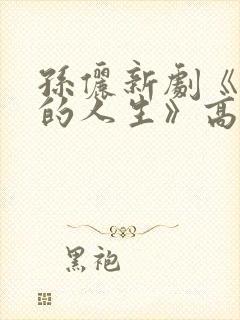 孫儷新劇《
的人生》高
黑袍